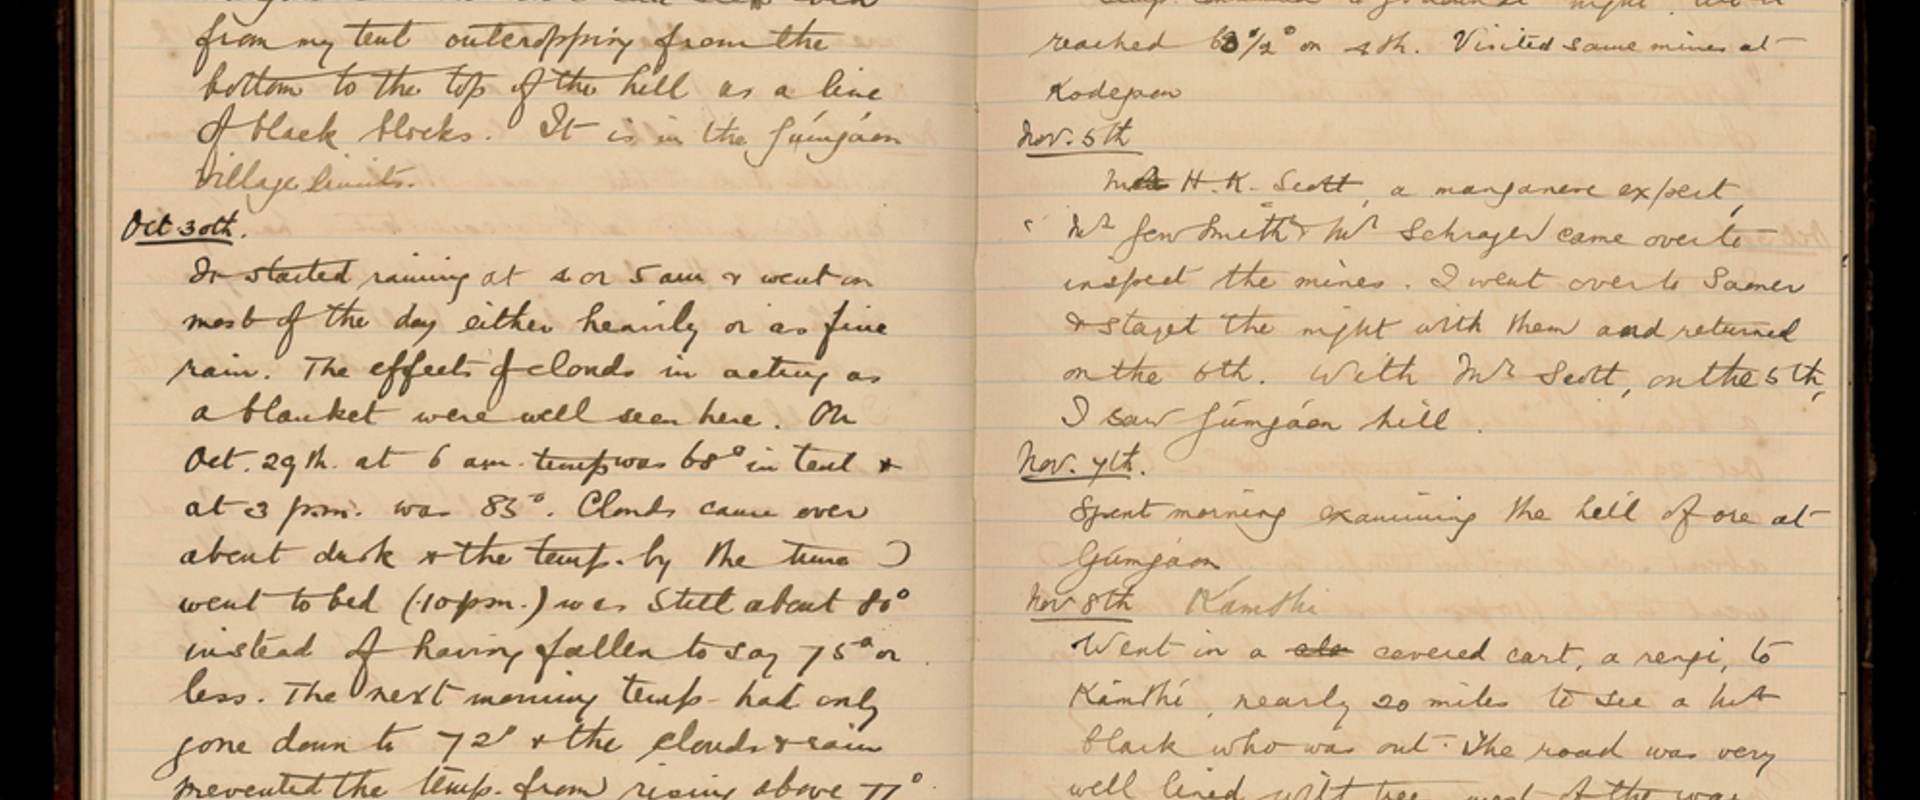 from my tent outcropping from the
bottom to the top of the hill as a line
of black blocks. It is in the Gúmgáon
village limits.
Oct 30th.
It started raining at 4 or 5 am & went on
most of the day either heavily or as fine
rain. The effects of clouds in acting as
a blanket were well seen here. On
Oct. 29th. at 6 am. temp was 68° in tent &
at 3 p.m. was 85°. Clouds came over
about dusk & the temp. by the time I
went to bed (10 pm.) was still about 80°
instead of having fallen to say 75° or
less. The next morning temp had only
gone down to 72° & the clouds & rain
prevented the temp. from rising above 77°
reached 63½° on 4th. Visited same mines at
Kodegaon
Nov. 5th
H. K. Scott, a manganese expert,
Mr Smith & Mr Schrager came over to
inspect the mines. I went over to Saoner
& stayet the night with them and returned
on the 6th. With Mr Scott, on the 5th,
I saw Gúmgáon hill.
Nov. 7th.
Spent morning examining the hill of ore at
Gúmgáon
Nov 8th Kámthi
Went in a clo covered cart, a rengi, to
Kámthi, nearly 20 miles to see a
black who was out. The road was very
well lined with tree most of the way